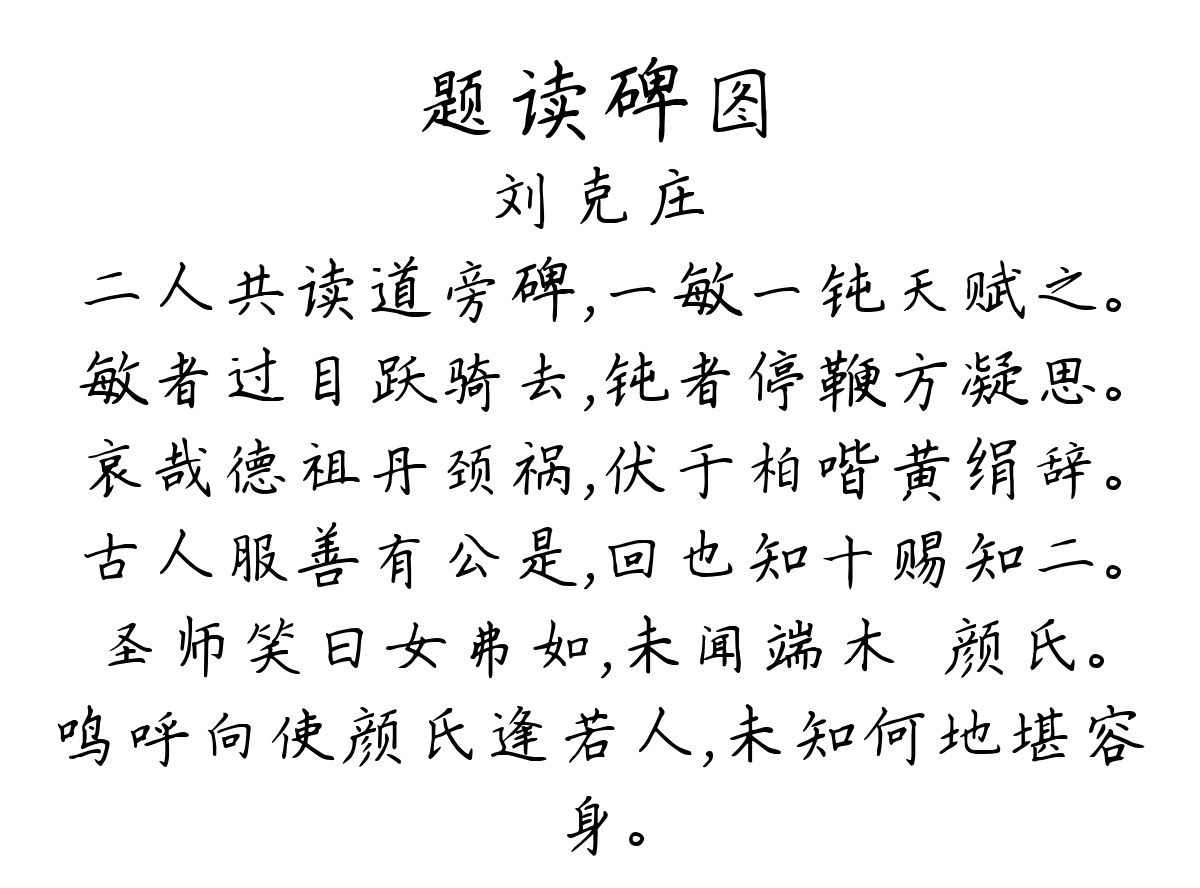 题读碑图
刘克庄
二人共读道旁碑,一敏一钝天赋之。
敏者过目跃骑去,钝者停鞭方凝思。
哀哉德祖丹颈祸,伏于柏喈黄绢辞。
古人服善有公是,回也知十赐知二。
圣师笑曰女弗如,未闻端木 颜氏。
鸣呼向使颜氏逢若人,未知何地堪容
身。